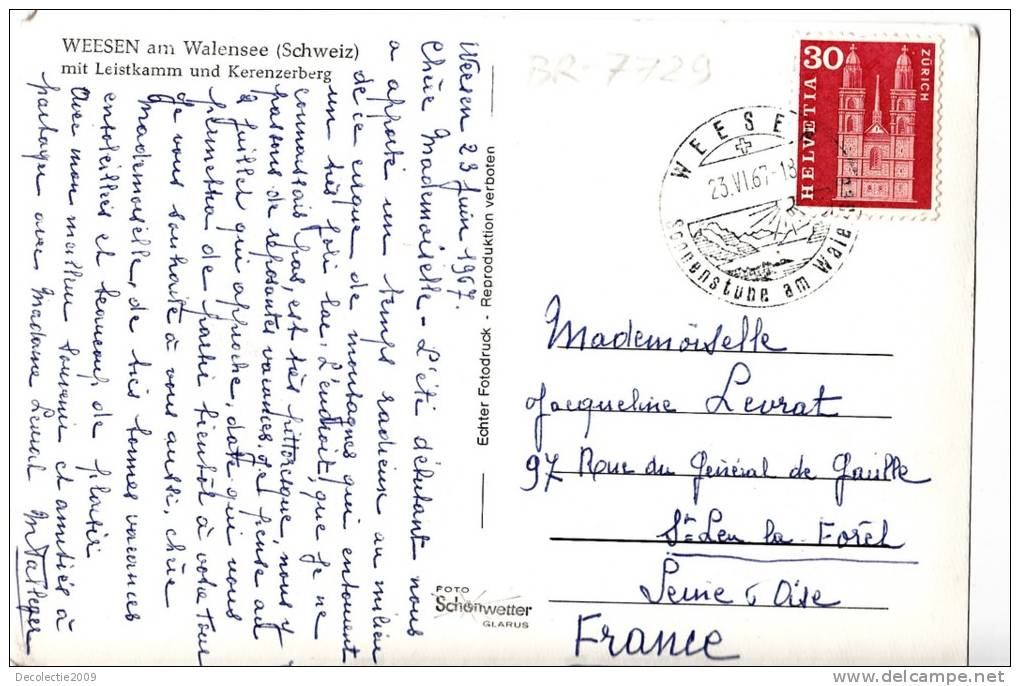 WEESEN am Walensee (Schweiz)
mit Leistkamm und Kerenzerberg
Weesen 23 Juin 1967.
Chère Mademoiselle - L'été débutant nous
a apporté un temps radieux au milieu
de ce cirque de montagnes qui entourent
un très joli lac, L'endroit, que je ne
connaissais pas, est très pittoresque, nous y
passons de reposantes vacances. Je pense au
juillet qui approche, date qui vous
permettra de partir bientôt à votre tour
Je vous souhaite à vous aussi, chère
Mademoiselle, de très bonnes vacances
ensoleillées et beaucoup de plaisir
Avec mon meilleur souvenir et amitiés à
partager avec Madame Levrat
Echter Fotodruck - Reproduktion verboten
FOTO
Schönwetter
GLARUS
BR-7729
HELVETIA
30
ZÜRICH
WEESEN
23.VI.67-18
Sonnenstube am Walensee
Mademoiselle
Jacqueline Levrat
97 Rue du Général de Gaulle
St-Leu la Forêt
Seine & Oise
France
Decolectie2009
www.delcampe.net